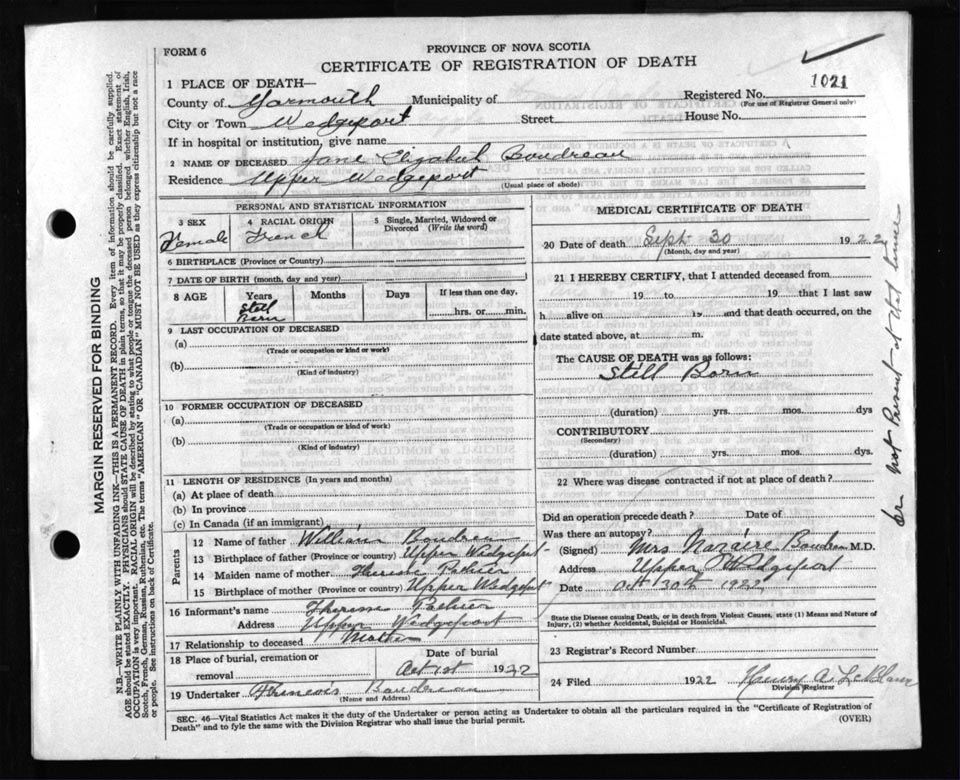 FORM 6
PROVINCE OF NOVA SCOTIA
CERTIFICATE OF REGISTRATION OF DEATH
1021
1 PLACE OF DEATH—
County of Yarmouth Municipality of Registered No.
(For use of Registrar General only)
City or Town Wedgeport Street House No.
If in hospital or institution, give name
2 NAME OF DECEASED Jane Elizabeth Boudreau
Residence Upper Wedgeport
(Usual place of abode)
PERSONAL AND STATISTICAL INFORMATION
3 SEX 4 RACIAL ORIGIN 5 Single, Married, Widowed or Divorced (Write the word)
Female French
6 BIRTHPLACE (Province or Country)
7 DATE OF BIRTH (month, day and year)
8 AGE Years Months Days If less than one day,
Still Born hrs. or min.
9 LAST OCCUPATION OF DECEASED
(a)
(Trade or occupation or kind or work)
(b)
(Kind of industry)
10 FORMER OCCUPATION OF DECEASED
(a)
(Trade or occupation or kind of work)
(b)
(Kind of industry)
11 LENGTH OF RESIDENCE (In years and months)
(a) At place of death
(b) In province
(c) In Canada (if an immigrant)
Parents
12 Name of father William Boudreau
13 Birthplace of father (Province or country) Upper Wedgeport
14 Maiden name of mother
15 Birthplace of mother (Province or country) Upper Wedgeport
16 Informant's name
Address Upper Wedgeport
17 Relationship to deceased Mother
18 Place of burial, cremation or removal Date of burial
Oct 1st 1922
19 Undertaker Boudreau
(Name and Address)
MEDICAL CERTIFICATE OF DEATH
20 Date of death Sept 30 1922
(Month, day and year)
21 I HEREBY CERTIFY, that I attended deceased from
19 to 19 that I last saw
h alive on 19 and that death occurred, on the
date stated above, at m.
The CAUSE OF DEATH was as follows:
Still Born
(duration) yrs. mos. dys
CONTRIBUTORY
(Secondary)
(duration) yrs. mos. dys.
22 Where was disease contracted if not at place of death?
Did an operation precede death? Date of
Was there an autopsy?
(Signed) Mrs Boudreau M.D.
Address Upper Wedgeport
Date Oct 30th 1922
State the Disease causing Death, or in death from Violent Causes, state (1) Means and Nature of
Injury, (2) whether Accidental, Suicidal or Homicidal.
23 Registrar's Record Number
24 Filed 1922 Henry A. LeBlanc
Division Registrar
SEC. 46—Vital Statistics Act makes it the duty of the Undertaker or person acting as Undertaker to obtain all the particulars required in the "Certificate of Registration of
Death" and to fyle the same with the Division Registrar who shall issue the burial permit.
(OVER)
MARGIN RESERVED FOR BINDING
N.B.—WRITE PLAINLY WITH UNFADING INK—THIS IS A PERMANENT RECORD. Every item of information should be carefully supplied.
AGE should be stated EXACTLY. PHYSICIANS should STATE CAUSE OF DEATH in plain terms, so that it may be properly classified. Exact statement of
OCCUPATION is very important. RACIAL ORIGIN will be described by stating to what people or tongue the deceased person belonged, whether English, Irish,
Scotch, French, German, Russian, Ruthenian, etc. The terms "AMERICAN" OR "CANADIAN" MUST NOT BE USED as they express citizenship but not a race
or people. See instructions on back of Certificate.
Dr not Present at that time